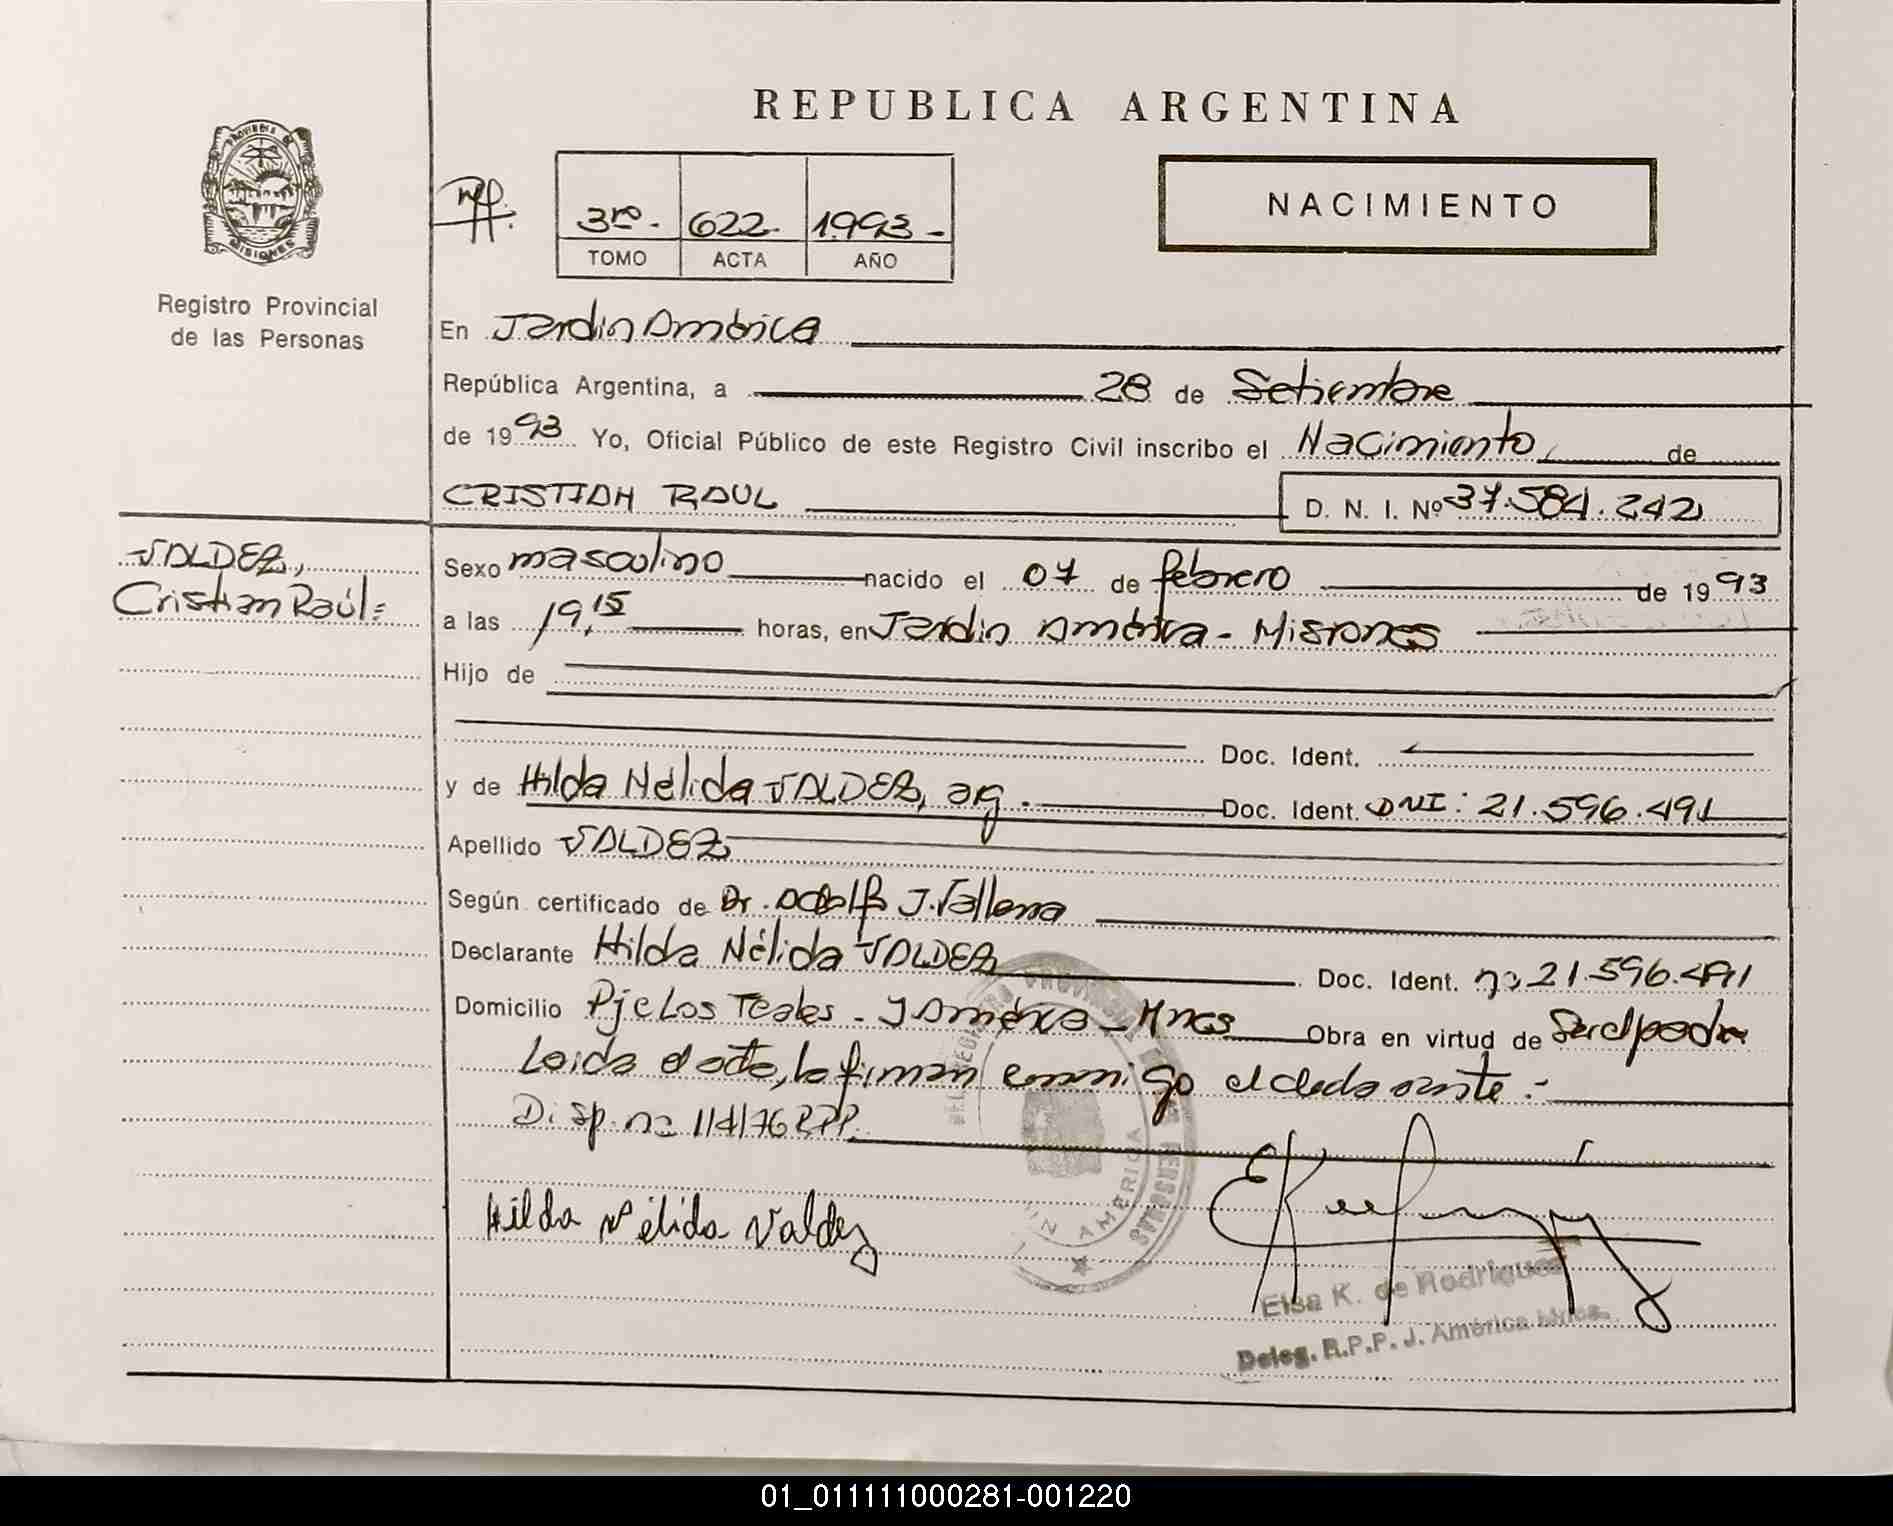 REPUBLICA ARGENTINA
PROVINCIA DE
MISIONES
Registro Provincial
de las Personas
3ro.- 622- 1993-
TOMO ACTA AÑO
NACIMIENTO
En Jardin América
República Argentina, a 28 de Setiembre
de 1993 Yo, Oficial Público de este Registro Civil inscribo el Nacimiento, de
CRISTIAN RAUL D. N. I. Nº 37.584.242
VALDEZ,
Cristian Raúl=
Sexo masculino nacido el 07 de febrero de 1993
a las 19,15 horas, en Jardin América - Misiones
Hijo de
Doc. Ident.
y de Hilda Nélida VALDEZ, arg. Doc. Ident. DNI: 21.596.491
Apellido VALDEZ
Según certificado de Dr. Adolfo J.
Declarante Hilda Nélida VALDEZ Doc. Ident. nº 21.596.491
Domicilio Pje Los Teales - J América - Mnes Obra en virtud de
Leida el acta, la firman conmigo el declarante :-
Disp. nº 114/76 RPP.
Hilda Nélida Valdez
Elsa K. de Rodriguez
Deleg. R.P.P. J. América Mnes.
01_011111000281-001220